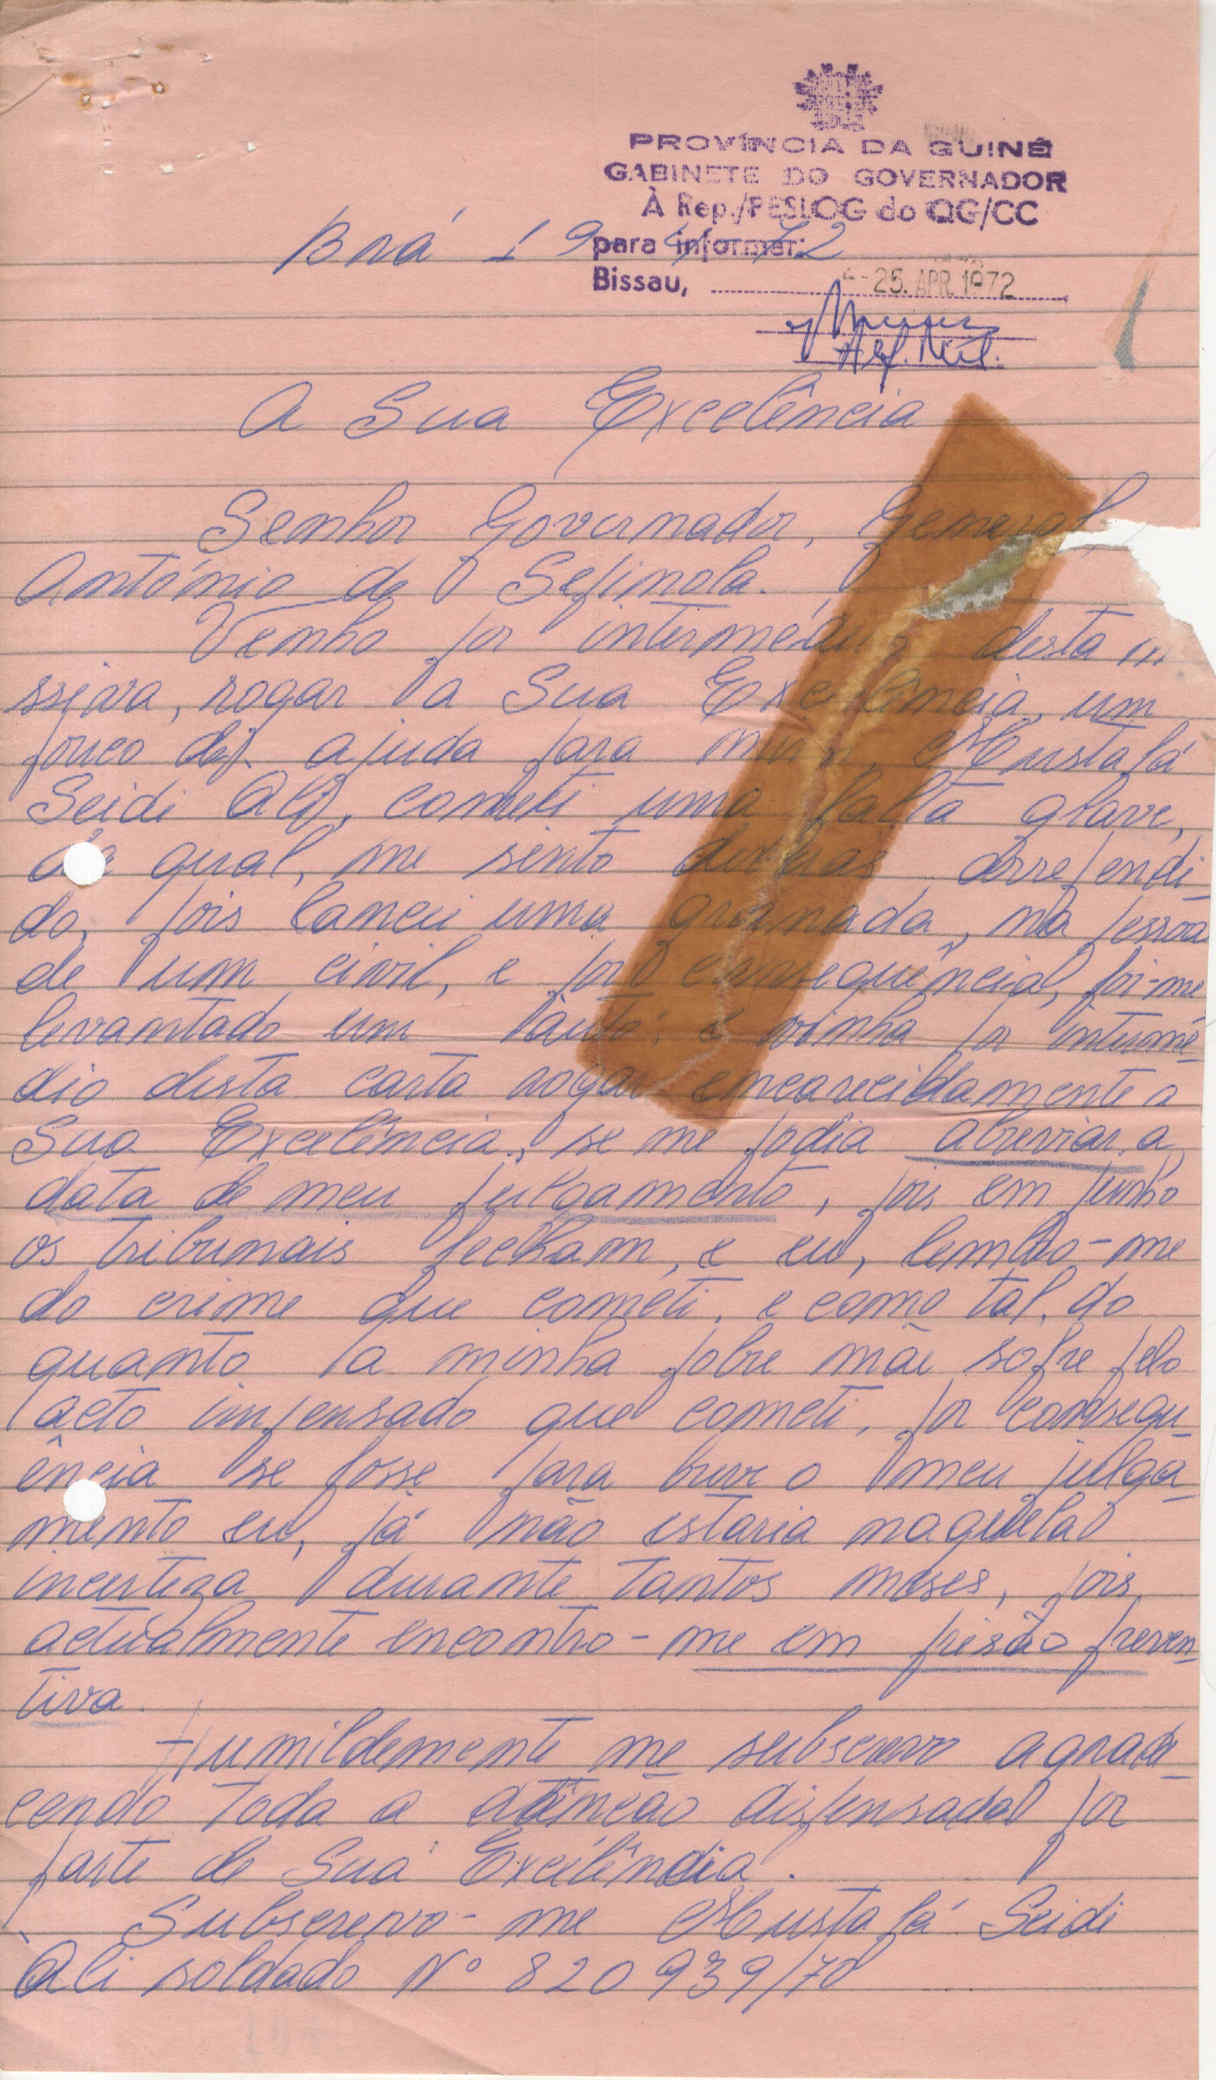 PROVÍNCIA DA GUINÉ
GABINETE DO GOVERNADOR
À Rep./PESLOG do QG/CC
para informar:
Brá 19 4 72
Bissau, 25. APR. 1972
A Sua Excelência
Senhor Governador, General
António de Sepinola.
Venho por intermédio desta m
ssiva, rogar a Sua Excelência, um
pouco de ajuda para mim, Mustafá
Seidi Ali, cometi uma falta grave,
da qual, me sinto deveras arrependi
do, pois lancei uma granada, na pessoa
de um civil, e por consequência, foi-me
levantado um auto; e vinha por intermé-
dio desta carta rogar encarecidamente a
Sua Excelência, se me podia abreviar a
data de meu julgamento, pois em Junho
os tribunais fecham, e eu, lembro-me
do crime que cometi, e como tal, do
quanto a minha pobre mãe sofre pelo
acto impensado que cometi, por consequ-
ência se fosse para breve o meu julga-
mento eu, já não estaria naquela
incerteza durante tantos meses, pois
actualmente encontro-me em prisão preven-
tiva.
Humildemente me subscrevo agrade-
cendo toda a atencão dispensada por
parte de Sua Excelência.
Subscrevo-me Mustafá Seidi
Ali soldado Nº 820939/70